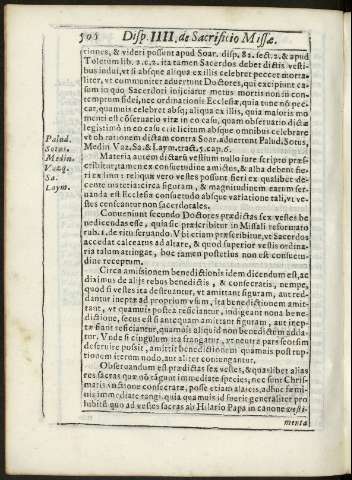 595 Disp. IIII. de Sacrificio Missæ.
tiones, & videri possunt apud Soar. disp. 82. sect. 2. & apud
Toletum lib. 2. c. 2. ita tamen Sacerdos debet dictis vesti-
bus indui, vt si absque aliqua ex illis celebret peccet morta-
liter, vt communiter aduertunt Doctores, qui excipiunt ca-
sum in quo Sacerdoti iniiciatur metus mortis non in con-
temptum fidei, nec ordinationis Ecclesiæ, quia tunc nõ pec-
car, quamuis celebret absq; aliqua ex illis, quia maioris mo
menti est cõseruatio vitæ in eo casu, quam obseruatio dictæ
legis: imò in eo casu ei licitum absque omnibus celebrare
vt ob rationem dictam contra Soar. aduertunt Palud. Sotus,
Medin. Vaz. Sa. & Laym. tract. 5. cap. 6.
Palud.
Sotus.
Medin.
Vasq.
Sa.
Laym.
Materia autem dictarũ vestium nullo iure scripto præs-
cribitur, tamen ex consuetudine amictus, & alba debent fie-
ri ex lino: reliquæ vero vestes possunt fieri ex qualibet de-
cente materia: circa figuram, & magnitudinem earum ser-
uanda est Ecclesiæ consuetudo absque variatione tali, vt ve-
stes censeantur non sacerdotales.
Conueniunt secundo Doctores prædictas sex vestes be
nedicendas esse, quia sic præscribitur in Missali reformato
rub. 1. de ritu seruando. Vbi etiam præscribitur, vt Sacerdos
accedat calceatus ad altare, & quod superior vestis ordina-
ria talum attingat, hoc tamen posterius non est consuetu-
dine receptum.
Circa amissionem benedictionis idem dicendum est, ac
diximus de aliis rebus benedictis, & consecratis, nempe,
quod si vestes ita destruantur, vt amittant figuram, aut red-
dantur ineptæ ad proprium vsum, ita benedictionem amit-
tant, vt quamuis postea resiciantur, indigeant noua bene-
dictione, secus est si antequam amittant figuram, aut inep-
tæ fiant resiciantur, quamuis aliquid non benedictum adda-
tur. Vnde si cingulum ita frangatur, vt neutra pars seorsim
deseruire possit, amittit benedictionem quamuis post rup-
tionem iterum nodo, aut aliter contiungantur.
Obseruandum est prædictas sex vestes, & quaslibet alias
res sacras quæ nõ tãgunt immediate species, nec sunt Chris-
matis vnctione consecratæ, posse etiam a laicis, adhuc fæmi-
nis immediate tangi. quia quamuis id fuerit generaliter pro
hibitũ quo ad vestes sacras ab Hilario Papa in canone vesti-
menta